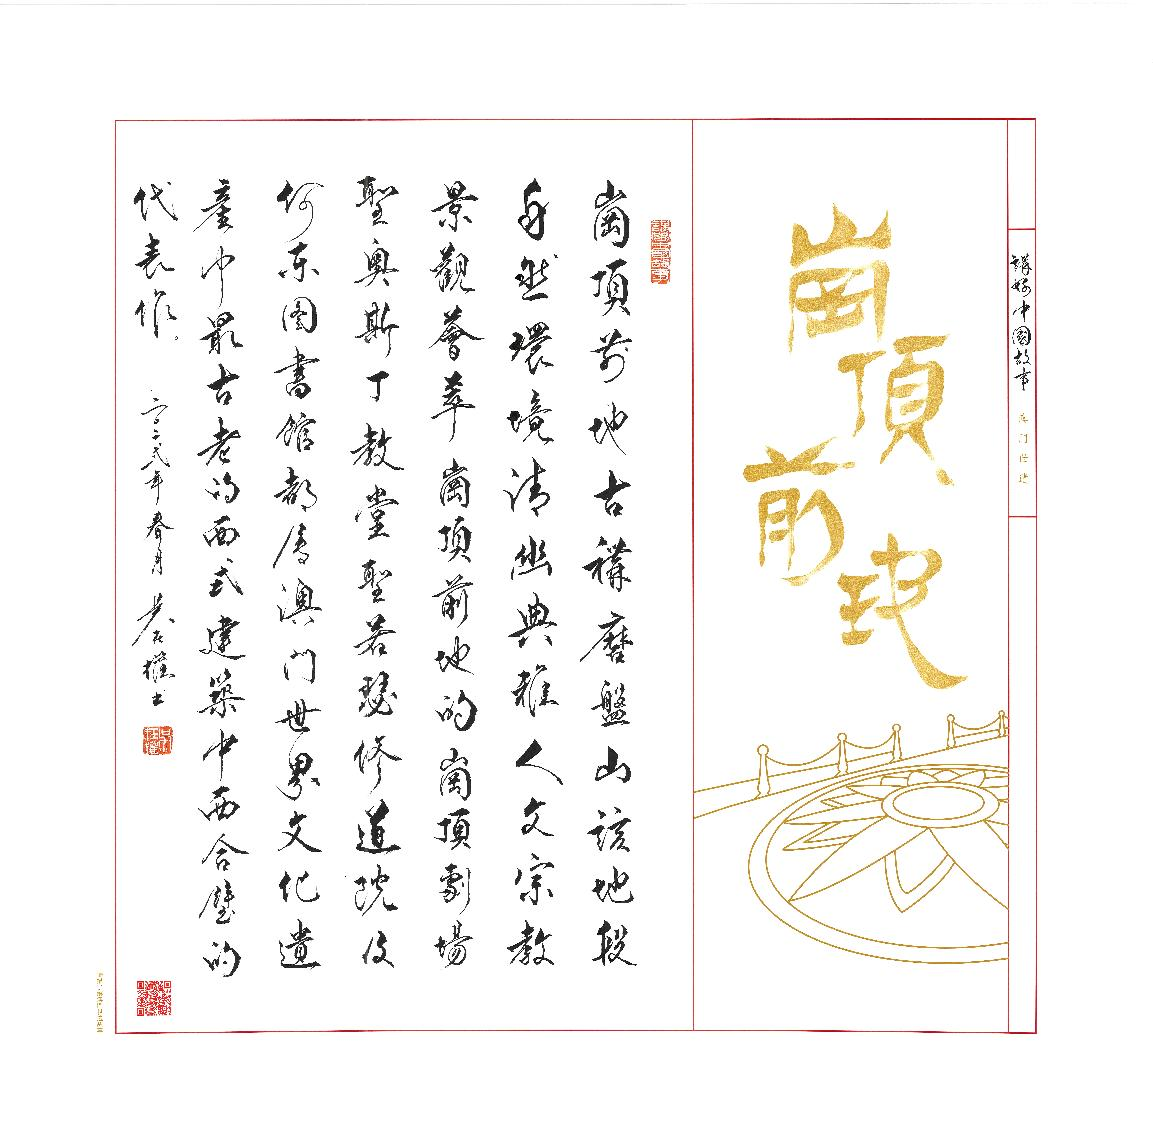 講好中國故事
澳門世遺
崗頂前地
崗頂前地古稱磨盤山該地段
自然環境清幽典雅人文宗教
景觀薈萃崗頂前地的崗頂劇場
聖奧斯丁教堂聖若瑟修道院及
何東图書館都屬澳門世界文化遺
產中最古老的西式建築中西合璧的
代表作。
二〇二弍年春月